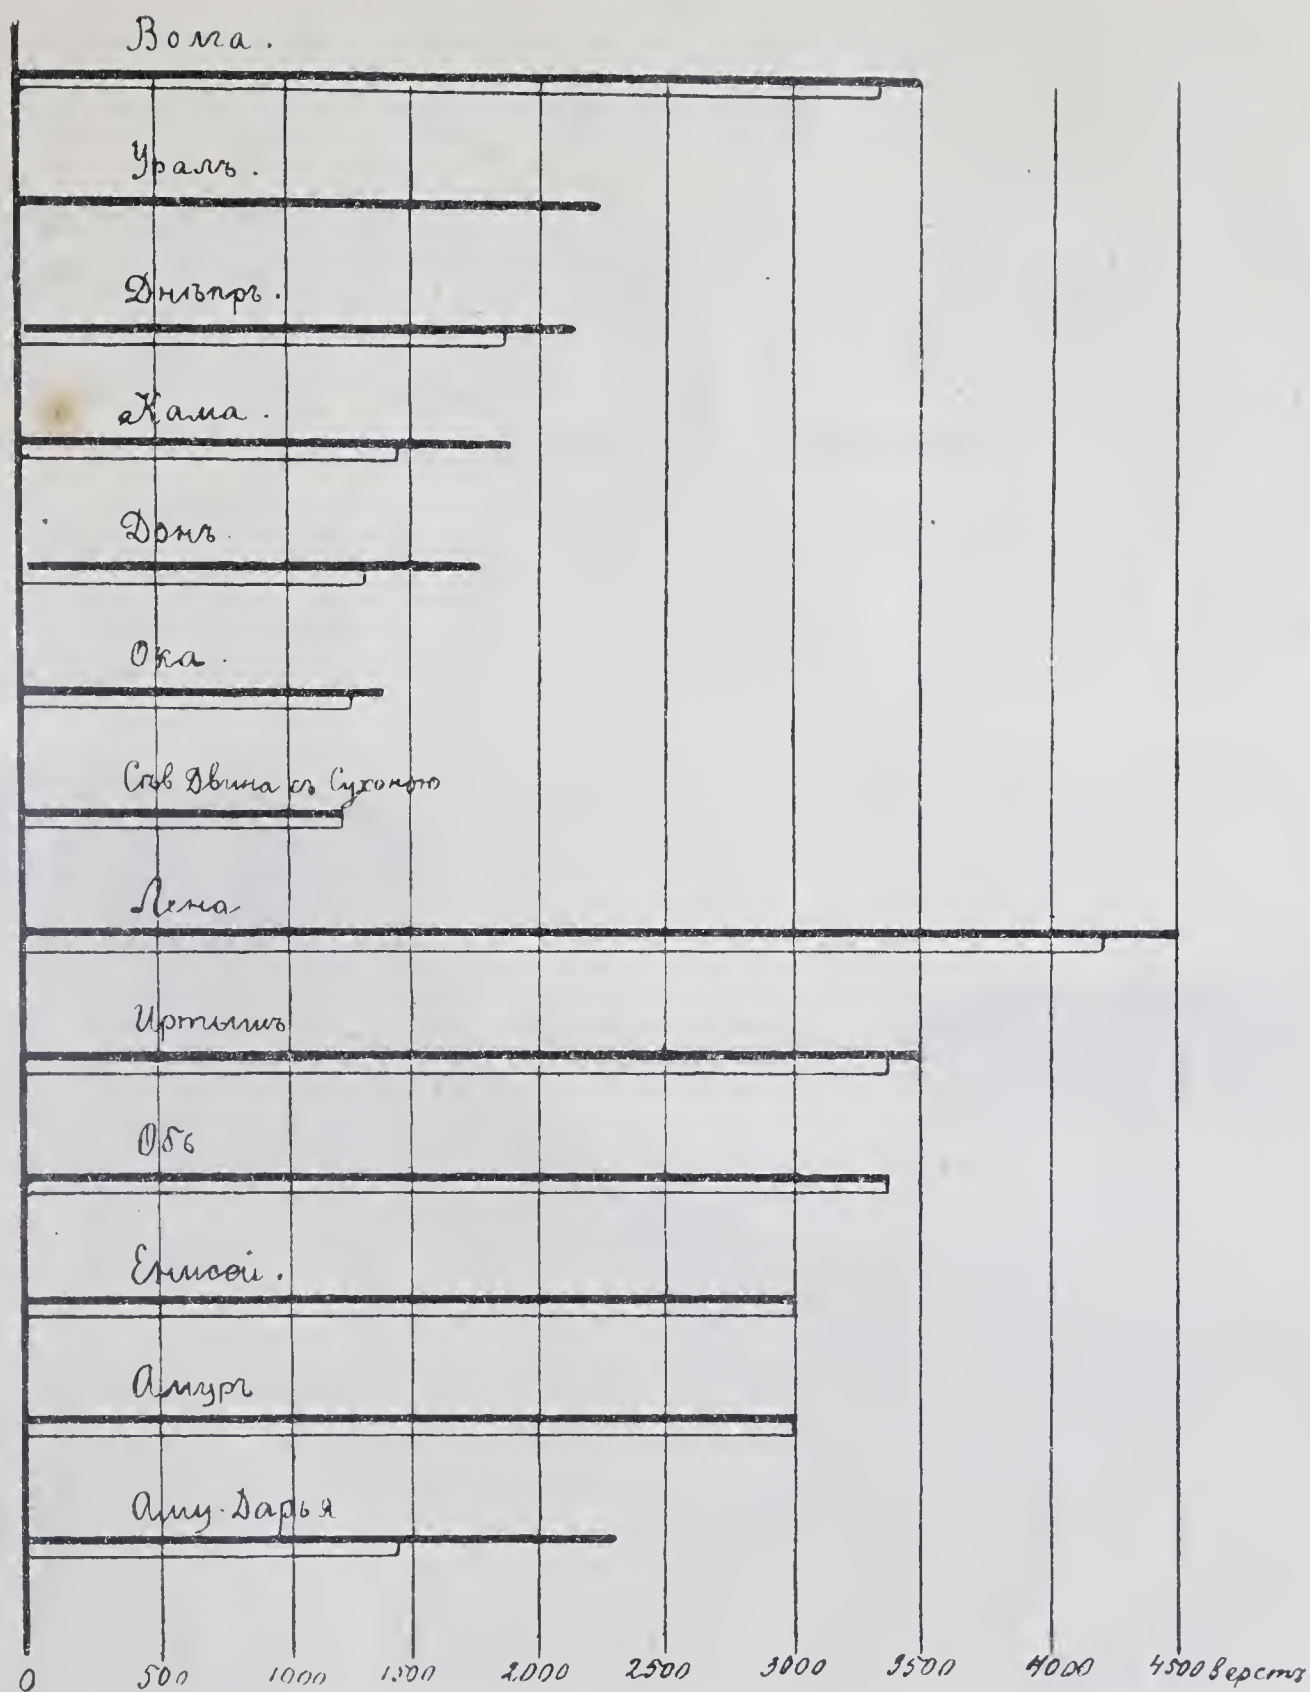 Волга.
Уралъ.
Днѣпръ.
Кама.
Донъ.
Ока.
Сѣв Двина съ Сухоною
Лена
Иртышъ
Обь
Енисей.
Амуръ
Аму-Дарья
0 500 1000 1500 2000 2500 3000 3500 4000 4500 верстъ